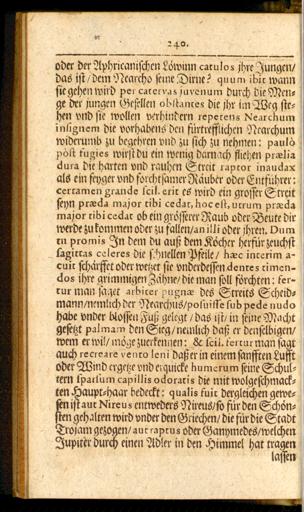 240.
oder der Aphricanischen Löwinn catulos jhre Jungen/
das ist/dem Nearcho seine Dirne? quum ibit wann
sie gehen wird per catervas juvenum durch die Men-
ge der jungen Gesellen obstantes die jhr im Weg ste-
hen vnd sie wollen verhindern repetens Nearchum
insignem die vorhabens den fürtrefflichen Nearchum
widerumb zu begehren vnd zu sich zu nehmen: paulò
pòst fugies wirst du ein wenig darnach fliehen prælia
dura die harten vnd rauhen Streit raptor inaudax
als ein feyger vnd forchtsamer Räuber oder Entführer:
certamen grande scil. erit es wird ein grosser Streit
seyn præda major tibi cedat, hoc est, utrum præda
major tibi cedat ob ein grösserer Raub oder Beute dir
werde zu kommen oder zu fallen/an illi oder jhren. Dum
tu promis In dem du auß dem Köcher herfür zeuchst
sagittas celeres die schnellen Pfeile/ hæc interim a-
cuit schärfft oder wetzt sie vnderdessen dentes timen-
dos jhre grimmigen Zähne/die man soll förchten: fer-
tur man saget arbiter pugnæ des Streits Scheids-
mann/nemlich der Nearchus/posuisse sub pede nudo
habe vnder blossen Fuß gelegt/das ist/in seine Macht
gesetzt palmam den Sieg/nemlich daß er denselbigen/
wem er wil/möge zuerkennen: & scil. fertur man sagt
auch recreare vento leni daß er in einem sanfften Lufft
oder Wind ergetze vnd erquicke humerum seine Schul-
tern sparsum capillis odoratis die mit wolgeschmack-
ten Haupt-haar bedeckt: qualis fuit dergleichen gewe-
sen ist aut Nireus entweders Nireus/so für den Schön-
sten gehalten wird vnder den Griechen/die für die Stadt
Trojam gezogen/aut raptus oder Ganymedes/welchen
Jupiter durch einen Adler in den Himmel hat tragen
lassen